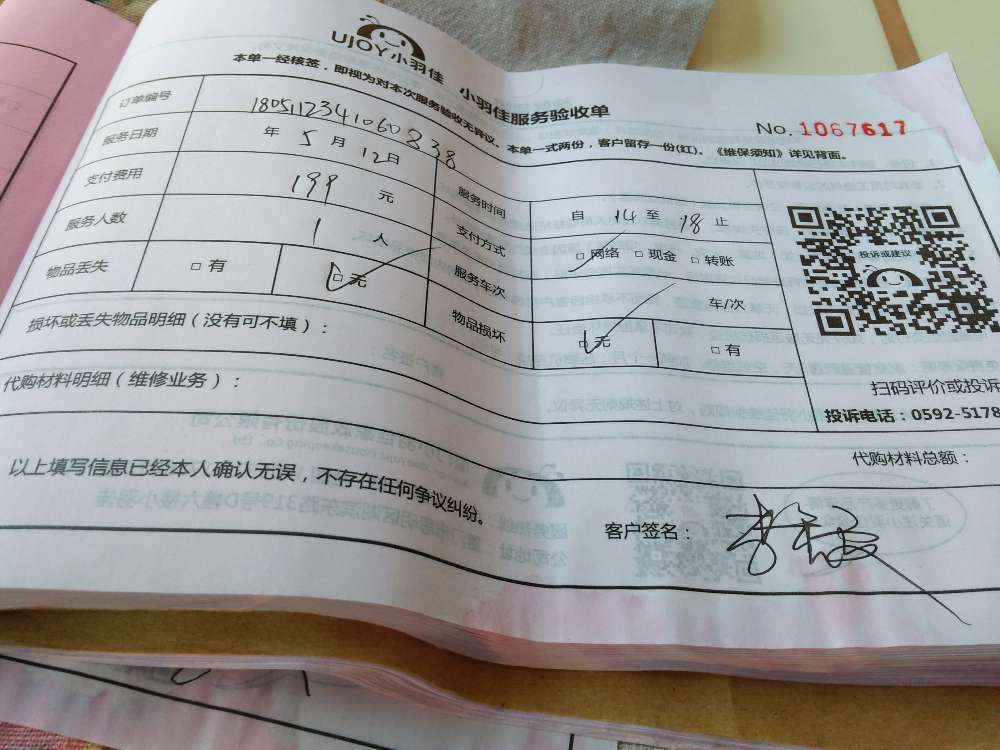 UJOY小羽佳
小羽佳服务验收单
本单一经核签，即视为对本次服务验收无异议。本单一式两份，客户留存一份(红)。《维保须知》详见背面。
No. 1067617
订单编号 180511234106083 8
服务日期 年 5 月 12 日 服务时间 自 14 至 18 止
支付费用 199 元 支付方式 □网络 □现金 □转账
服务人数 1 人 服务车次 车/次
物品丢失 □有 □无 物品损坏 □无 □有
损坏或丢失物品明细（没有可不填）：
代购材料明细（维修业务）：
投诉或建议
扫码评价或投诉
投诉电话：0592-5178
代购材料总额：
以上填写信息已经本人确认无误，不存在任何争议纠纷。
客户签名：